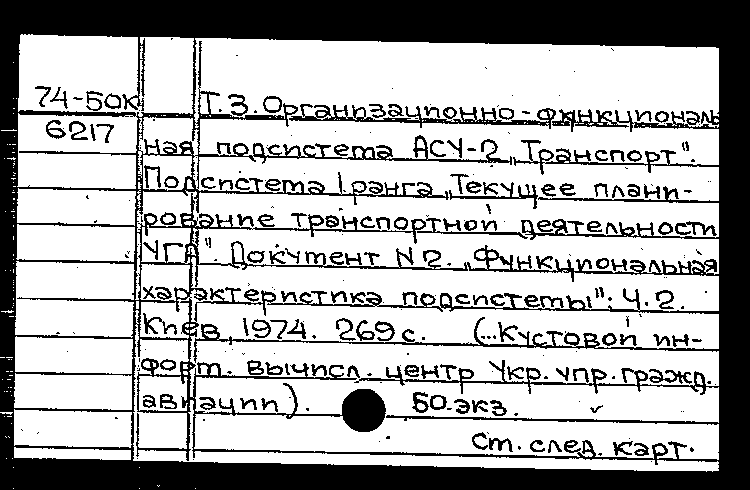 74-50к Т.3. Организационно-функциональ
6217 ная подсистема АСУ-2 „Транспорт".
Подсистема I ранга „Текущее плани-
рование транспортной деятельности
УГА". Документ N2. „Функциональная
характеристика подсистемы": Ч.2.
Киев, 1974. 269 с. (..Кустовой ин-
форм. вычисл. центр Укр. упр. гражд.
авиации). 50.экз.
См. след. карт.